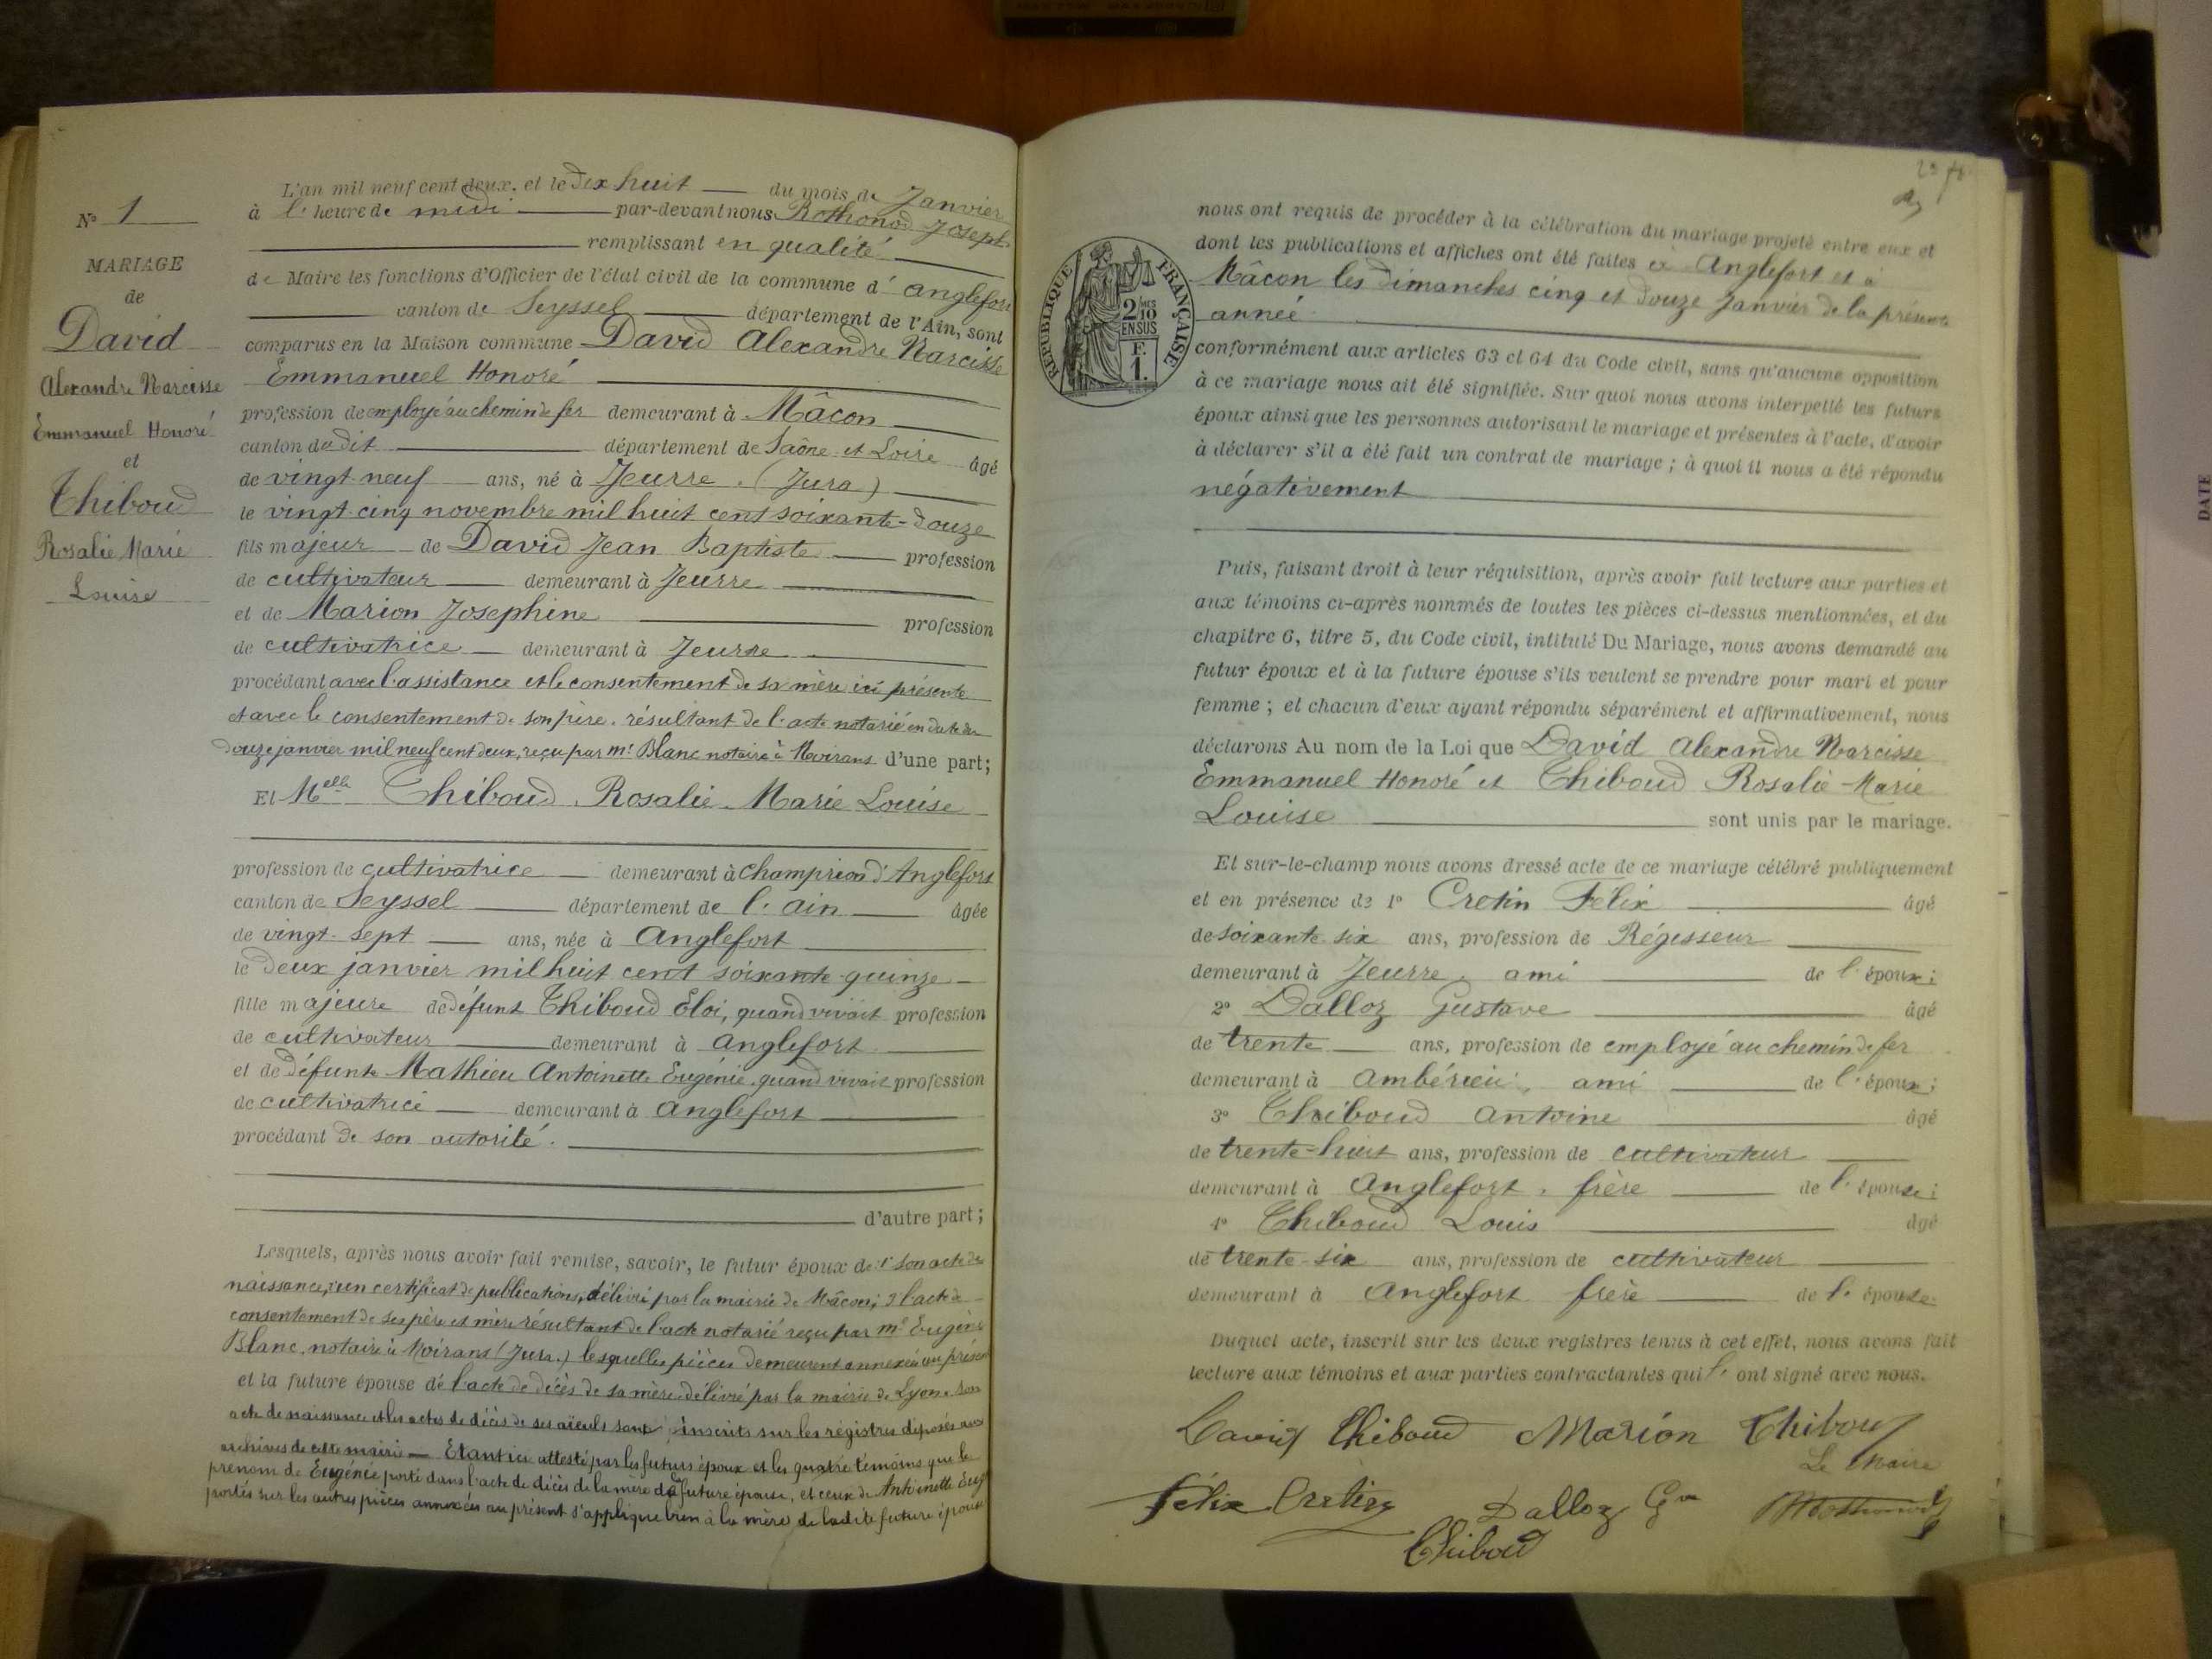 N° 1
MARIAGE
de
David
Alexandre Narcisse
Emmanuel Honoré
et
Thiboud
Rosalie Marie
Louise
L'an mil neuf cent deux, et le dix huit du mois de Janvier
à l'heure de midi par-devant nous Rothonod Joseph
remplissant en qualité
de Maire les fonctions d'Officier de l'état civil de la commune d'anglefort
canton de Seyssel département de l'Ain, sont
comparus en la Maison commune David Alexandre Narcisse
Emmanuel Honoré
profession de employé au chemin de fer demeurant à Mâcon
canton du dit département de Saône et Loire âgé
de vingt-neuf ans, né à Jeurre (Jura)
le vingt-cinq novembre mil huit cent soixante-douze
fils majeur de David Jean Baptiste profession
de cultivateur demeurant à Jeurre
et de Marion Josephine profession
de cultivatrice demeurant à Jeurre
procédant avec l'assistance et le consentement de sa mère ici présente
et avec le consentement de son père, résultant de l'acte notarié en date du
douze janvier mil neuf cent deux, reçu par me Blanc notaire à Moirans d'une part;
Et Melle Thiboud Rosalie Marie Louise
profession de cultivatrice demeurant à Champriond d'Anglefort
canton de Seyssel département de l'ain âgée
de vingt-sept ans, née à Anglefort
le deux janvier mil huit cent soixante-quinze
fille majeure de défunt Thiboud Eloi, quand vivait profession
de cultivateur demeurant à anglefort
et de défunte Mathieu Antoinette Eugénie quand vivait profession
de cultivatrice demeurant à anglefort
procédant de son autorité.
d'autre part;
Lesquels, après nous avoir fait remise, savoir, le futur époux de 1° son acte de
naissance, un certificat de publications, délivré par la mairie de Mâcon; 3 l'acte de
consentement de ses père et mère résultant de l'acte notarié reçu par me Eugène
Blanc, notaire à Moirans (Jura.) lesquelles pièces demeurent annexées au présent
et la future épouse de l'acte de décès de sa mère délivré par la mairie de Lyon. Son
acte de naissance et les actes de décès de ses aïeuls sont inscrits sur les régistres déposés aux
archives de cette mairie — Etant ici attesté par les futurs époux et les quatre témoins que le
prenom de Eugénie porté dans l'acte de décès de la mère de la future épouse, et ceux de Antoinette Eug
portés sur les autres pièces annexées au présent s'applique bien à la mère de ladite future épouse
REPUBLIQUE FRANÇAISE
2 MES
10
EN SUS
F.
1.
nous ont requis de procéder à la célébration du mariage projeté entre eux et
dont les publications et affiches ont été faites à Anglefort et à
Mâcon les dimanches cinq et douze Janvier de la présente
année
conformément aux articles 63 et 64 du Code civil, sans qu'aucune opposition
à ce mariage nous ait été signifiée. Sur quoi nous avons interpellé les futurs
époux ainsi que les personnes autorisant le mariage et présentes à l'acte, d'avoir
à déclarer s'il a été fait un contrat de mariage; à quoi il nous a été répondu
négativement
Puis, faisant droit à leur réquisition, après avoir fait lecture aux parties et
aux témoins ci-après nommés de toutes les pièces ci-dessus mentionnées, et du
chapitre 6, titre 5, du Code civil, intitulé Du Mariage, nous avons demandé au
futur époux et à la future épouse s'ils veulent se prendre pour mari et pour
femme; et chacun d'eux ayant répondu séparément et affirmativement, nous
déclarons Au nom de la Loi que David Alexandre Narcisse
Emmanuel Honoré et Thiboud Rosalie-Marie
Louise sont unis par le mariage.
Et sur-le-champ nous avons dressé acte de ce mariage célébré publiquement
et en présence de 1° Cretin Félix âgé
de soixante six ans, profession de Régisseur
demeurant à Jeurre, ami de l'époux;
2° Dalloz Gustave âgé
de trente ans, profession de employé au chemin de fer
demeurant à Ambérieu, ami de l'époux;
3° Thiboud Antoine âgé
de trente-huit ans, profession de cultivateur
demeurant à Anglefort, frère de l'épouse;
4° Thiboud Louis âgé
de trente-six ans, profession de cultivateur
demeurant à Anglefort frère de l'épouse
Duquel acte, inscrit sur les deux registres tenus à cet effet, nous avons fait
lecture aux témoins et aux parties contractantes qui l' ont signé avec nous.
David Thiboud Marion Thiboud
Le Maire
Félix Cretin Dalloz Gve Rothonod
Thiboud
DATE